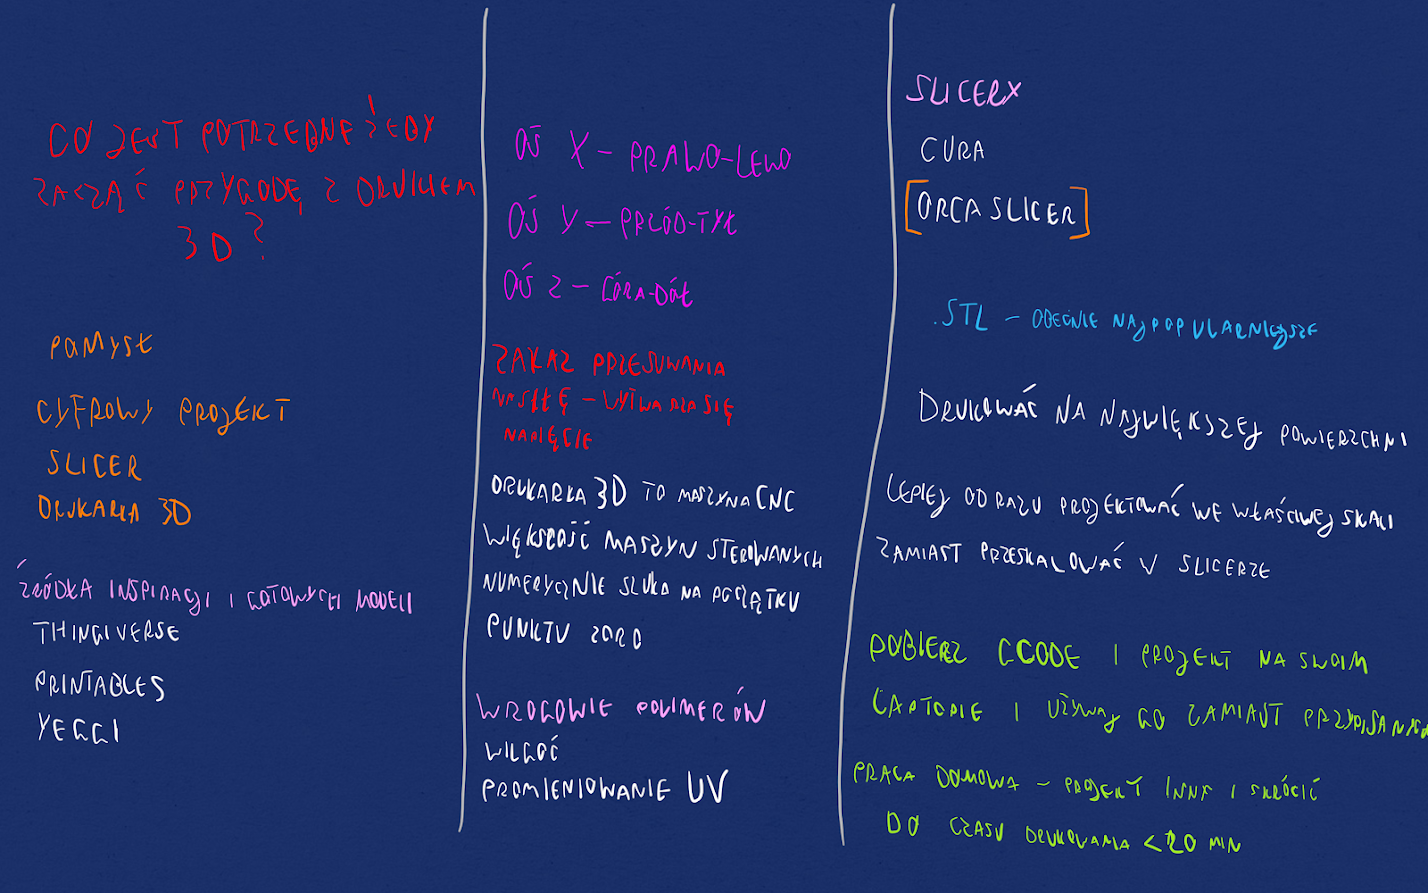 CO JEST POTRZEBNE ŻEBY
ZACZĄĆ PRZYGODĘ Z DRUKIEM
3D?
POMYSŁ
CYFROWY PROJEKT
SLICER
DRUKARKA 3D
ŹRÓDŁA INSPIRACJI I GOTOWYCH MODELI
THINGIVERSE
PRINTABLES
YEGGI
OŚ X – PRAWO-LEWO
OŚ Y – PRZÓD-TYŁ
OŚ Z – GÓRA-DÓŁ
ZAKAZ PRZESUWANIA
NA SIŁĘ – WYTWARZA SIĘ
NAPIĘCIE
DRUKARKA 3D TO MASZYNA CNC
WIĘKSZOŚĆ MASZYN STEROWANYCH
NUMERYCZNIE SZUKA NA POCZĄTKU
PUNKTU ZERO
WROGOWIE POLIMERÓW
WILGOĆ
PROMIENIOWANIE UV
SLICERY
CURA
[ORCA SLICER]
.STL – OBECNIE NAJPOPULARNIEJSZE
DRUKOWAĆ NA NAJWIĘKSZEJ POWIERZCHNI
LEPIEJ OD RAZU PROJEKTOWAĆ WE WŁAŚCIWEJ SKALI
ZAMIAST PRZESKALOWAĆ W SLICERZE
POBIERZ GCODE I PROJEKT NA SWOIM
LAPTOPIE I UŻYWAJ GO ZAMIAST
PRACA DOMOWA – PROJEKT INNY I SKRÓCIĆ
DO CZASU DRUKOWANIA <20 MIN